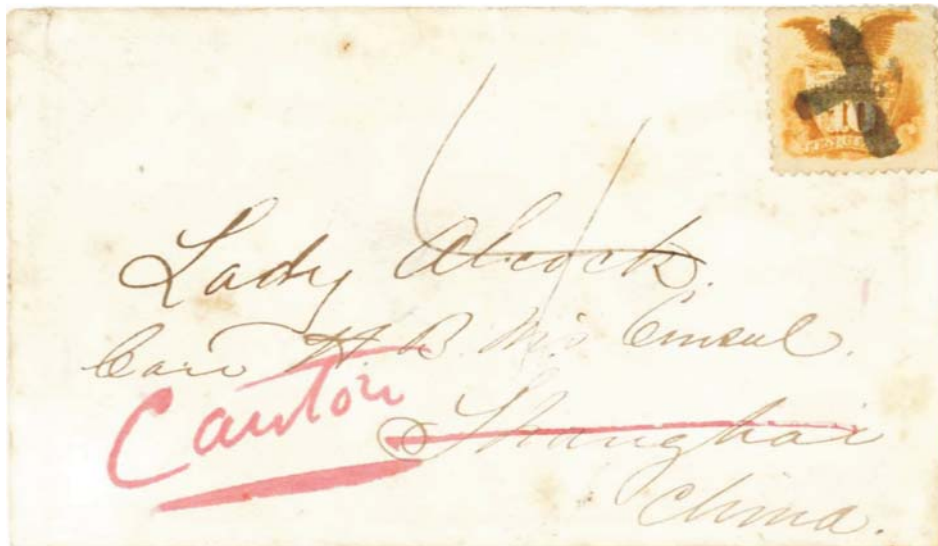 10
Lady Alcock.
Care H. B. M's Consul.
Canton
Shanghai
China.